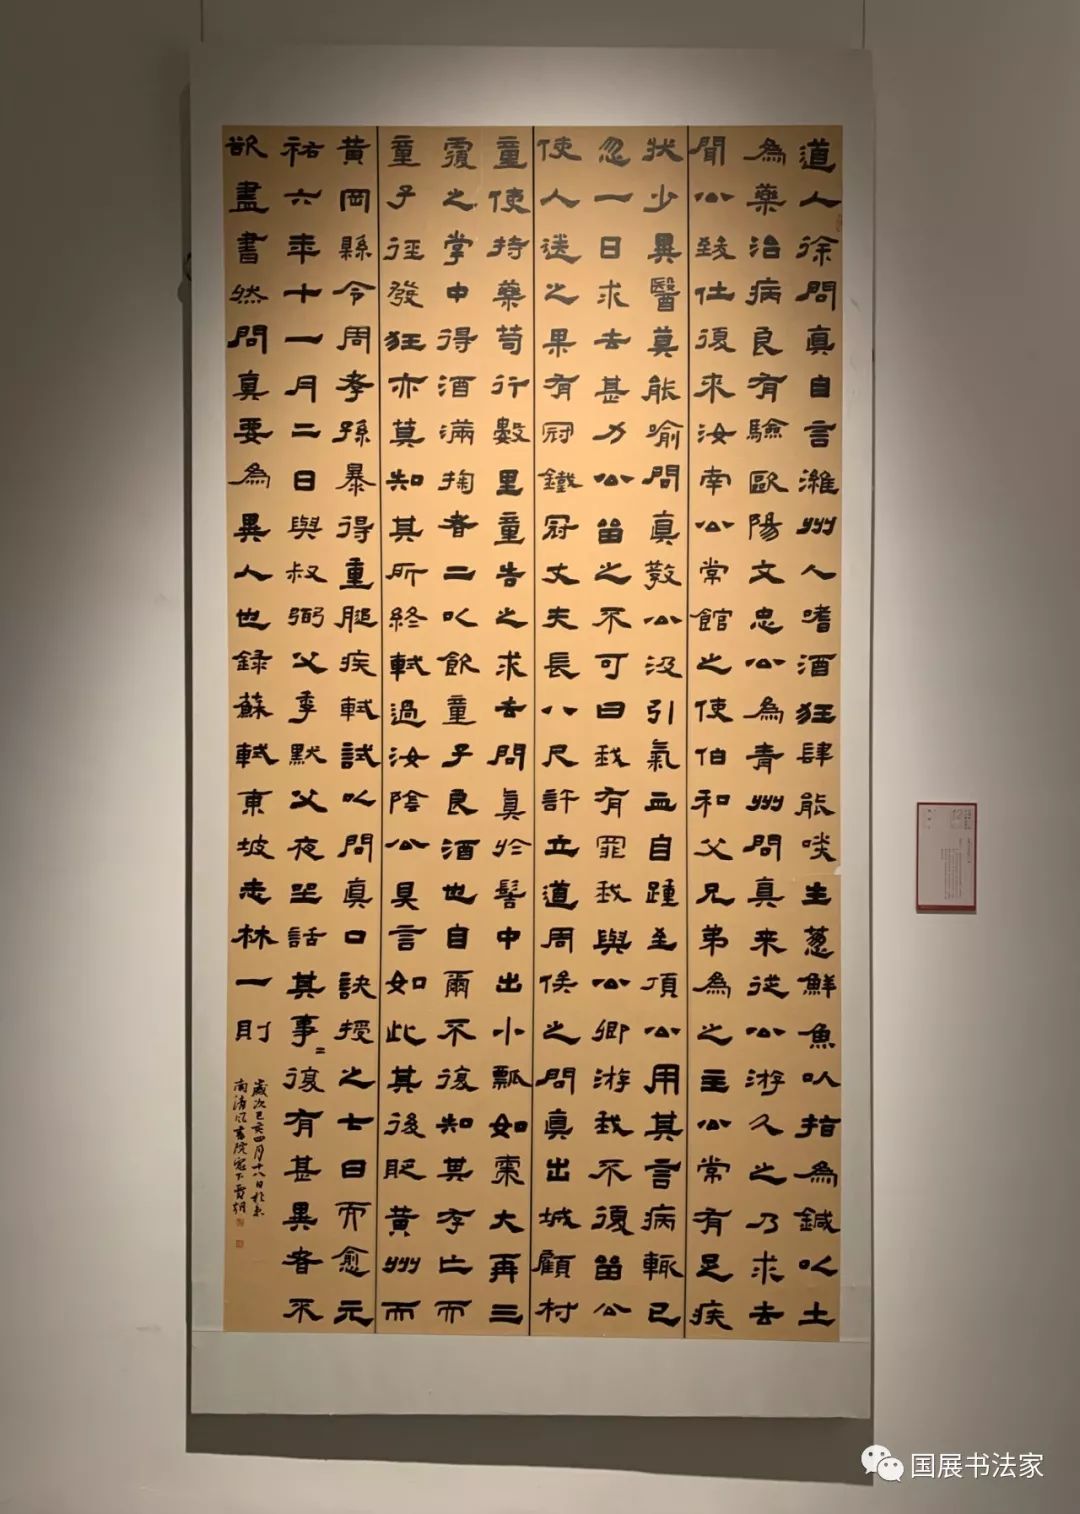 道人徐問真自言濰州人嗜酒狂肆能啖生蔥鮮魚以指為鍼以土
為藥治病良有驗歐陽文忠公為青州問真来從公游久之乃求去
聞公致仕復來汝南公常館之使伯和父兄弟為之主公常有足疾
狀少異醫莫能喻問真教公汲引氣血自踵至頂公用其言病輒已
忽一日求去甚力公留之不可曰我有罪我與公卿游我不復留公
使人送之果有冠鐵冠丈夫長八尺許立道周俟之問真出城顧村
童使持藥笥行數里童告之求去問真於髻中出小瓢如棗大再三
覆之掌中得酒滿掬者二以飲童子良酒也自爾不復知其存亡而
童子徑發狂亦莫知其所終軾過汝陰公具言如此其後貶黃州而
黃岡縣令周孝孫暴得重膇疾軾試以問真口訣授之七日而愈元
祐六年十一月二日與叔弼父季默父夜坐話其事〻復有甚異者不
欲盡書然問真要為異人也錄蘇軾東坡志林一則
歲次己亥四月十八日於京
南清風書院窗下賈
国展书法家